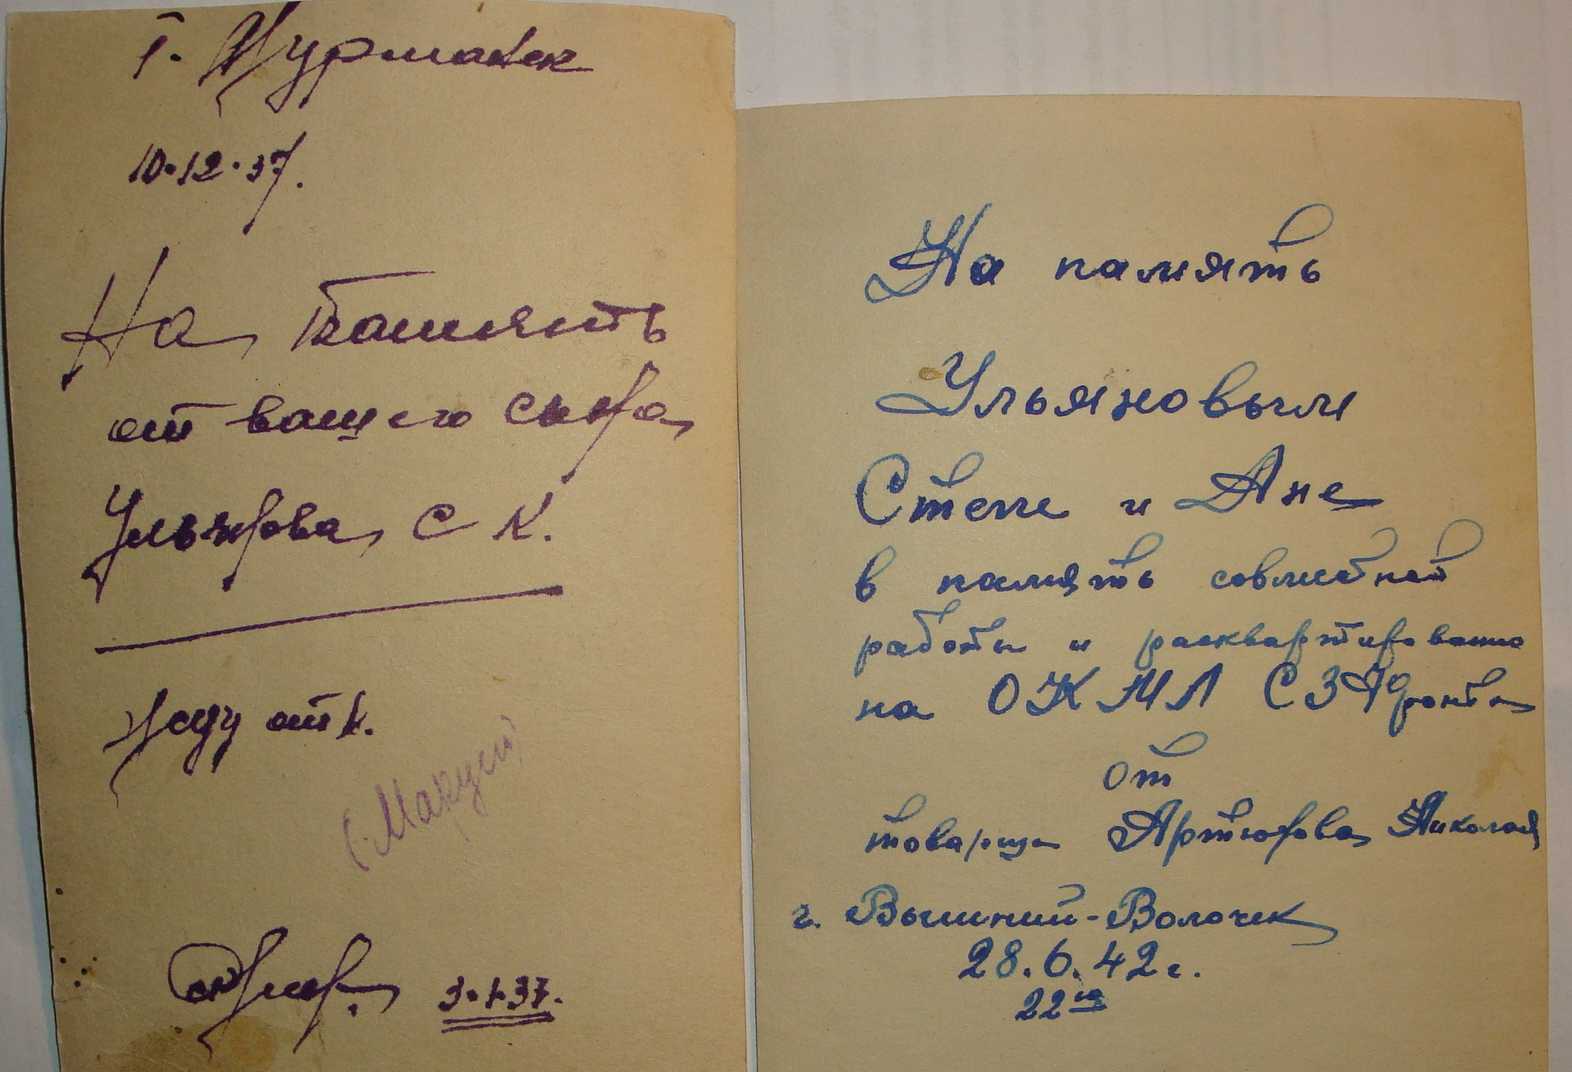 г. Мурманск
10.12.37.
На Память
от вашего сына
Ульянова С К.
жду отв.
3.1.37.
На память
Ульяновым
Степе и Ане
в память совместной
работы и расквартирования
на ОКМЛ СЗФронта
от
товарища Артюхова Николая
г. Вышний-Волочек
28.6.42г.
22 ча